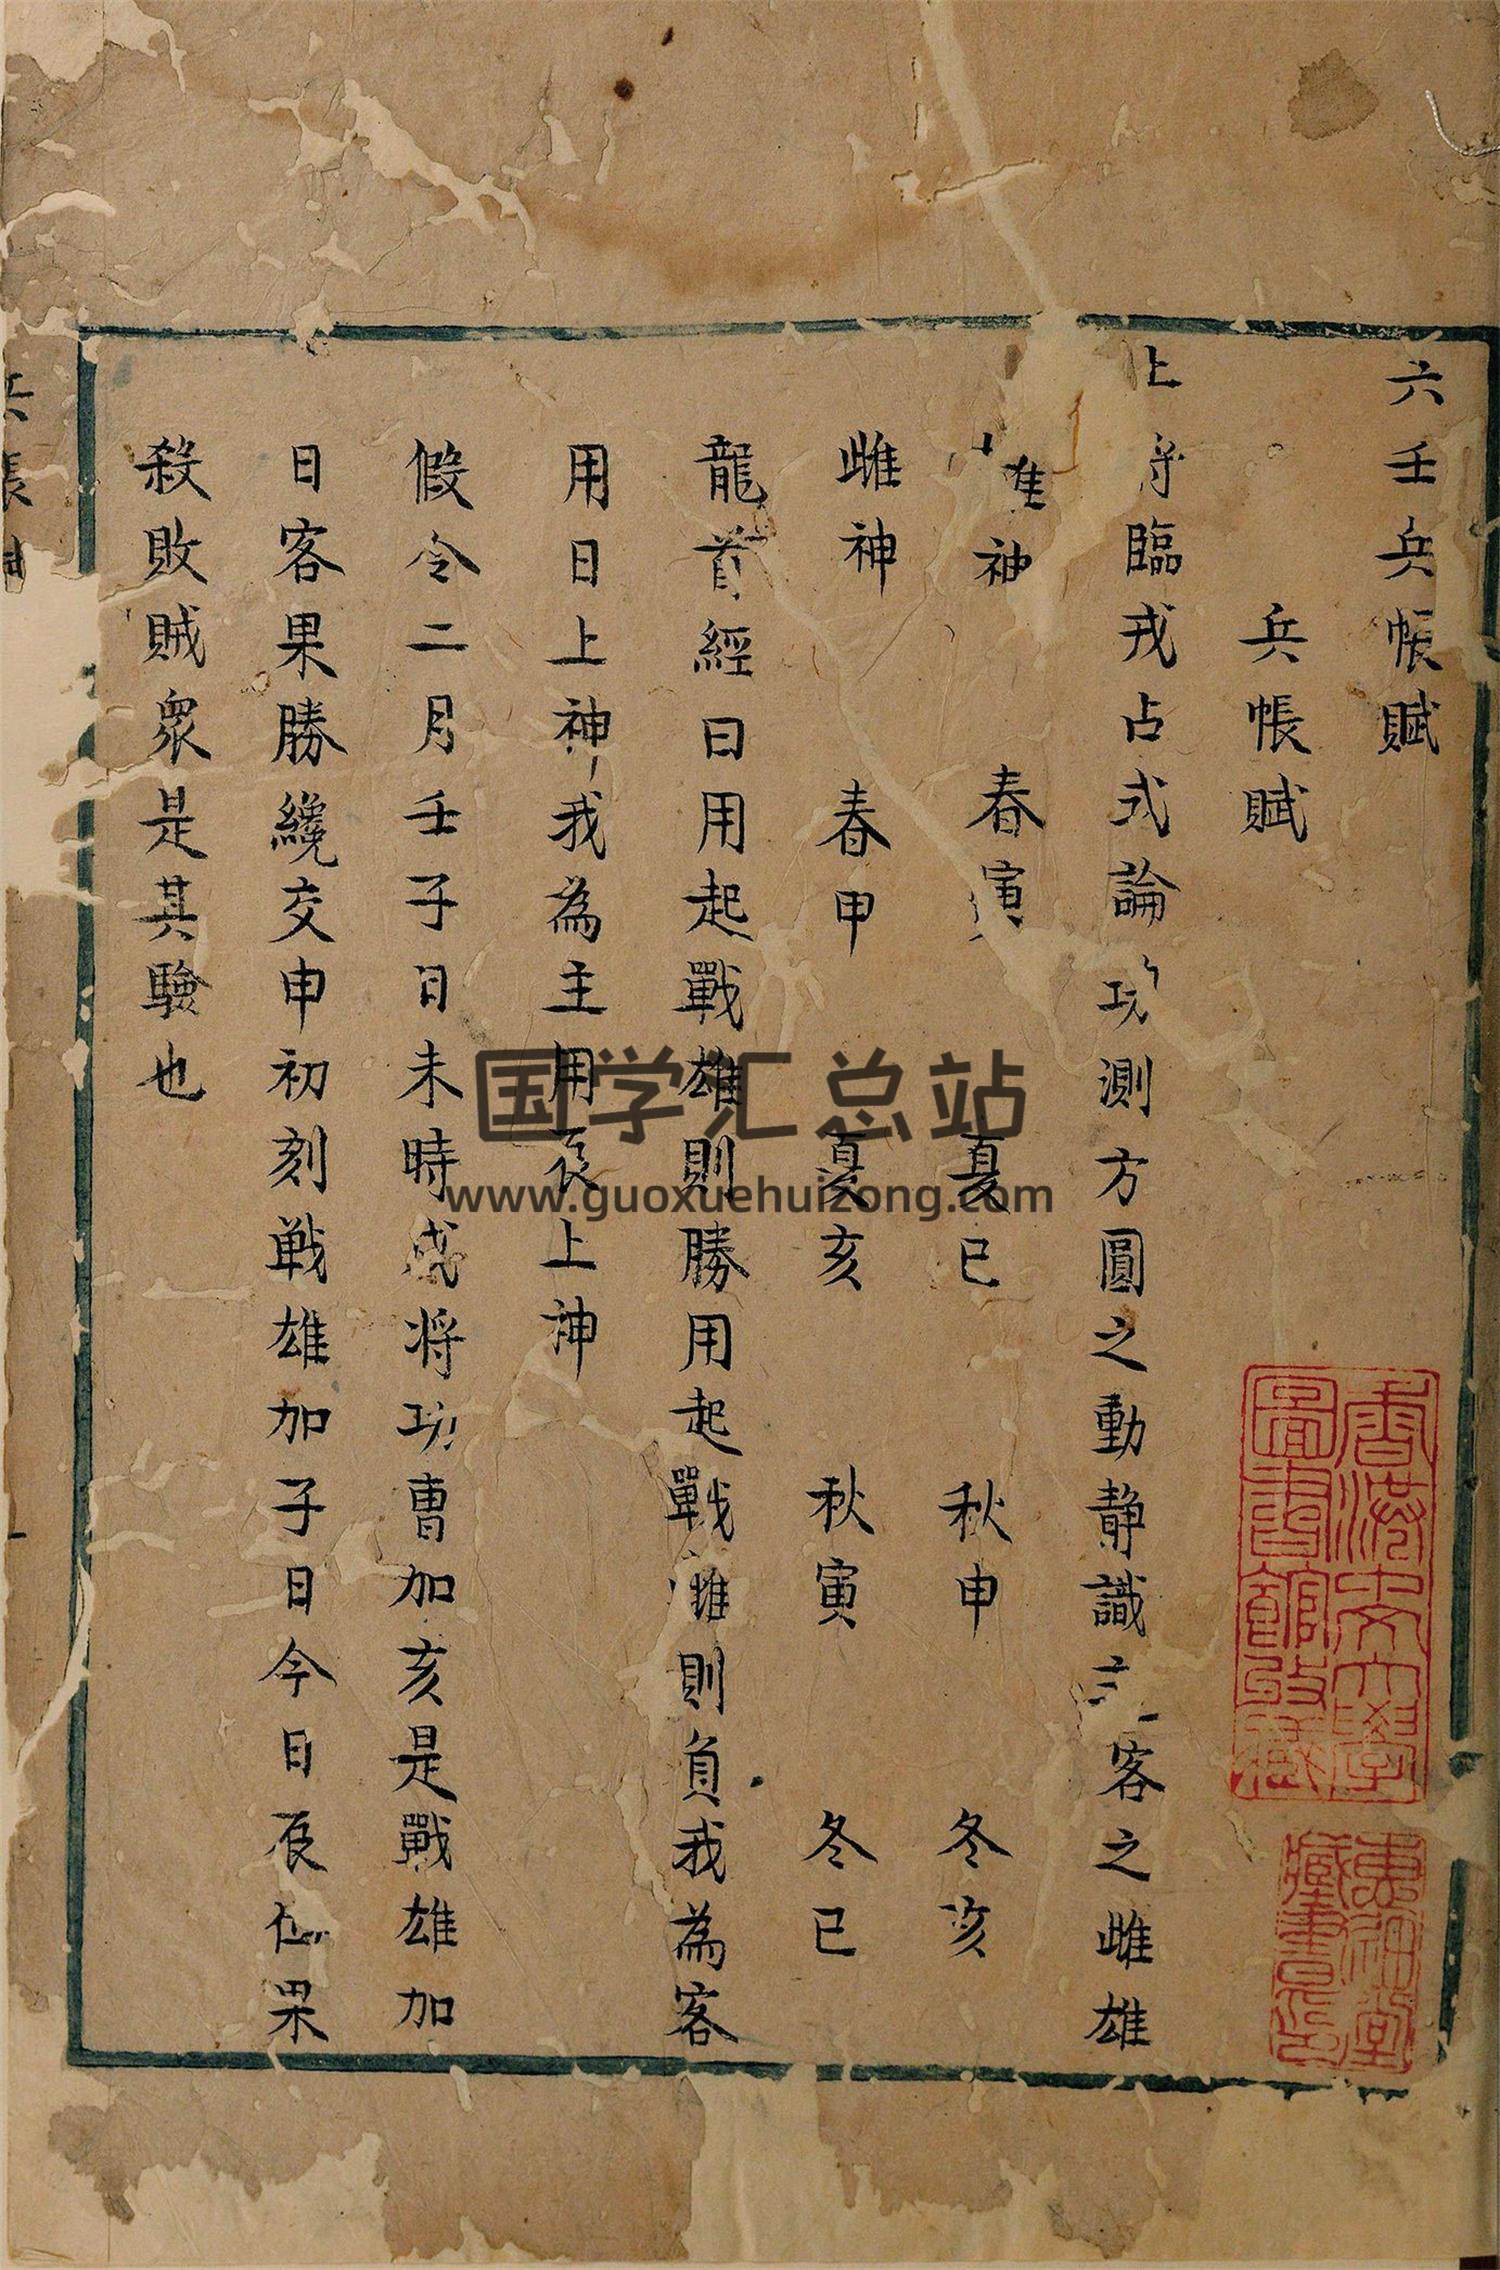 六壬兵帳賦
兵帳賦
上將臨戎占式論攻測方圓之動靜識主客之雌雄
雄神 春寅 夏巳 秋申 冬亥
雌神 春申 夏亥 秋寅 冬巳
龍首經曰用起戰雄則勝用起戰雌則負我為客
用日上神我為主用辰上神
假令二月壬子日未時戌將功曹加亥是戰雄加
日客果勝纔交申初刻戰雄加子日今日辰位果
殺敗賊衆是其驗也
兵帳賦
一
香港中文大學
圖書館所藏
堂
藏書印
国学汇总站
www.guoxuehuizong.com